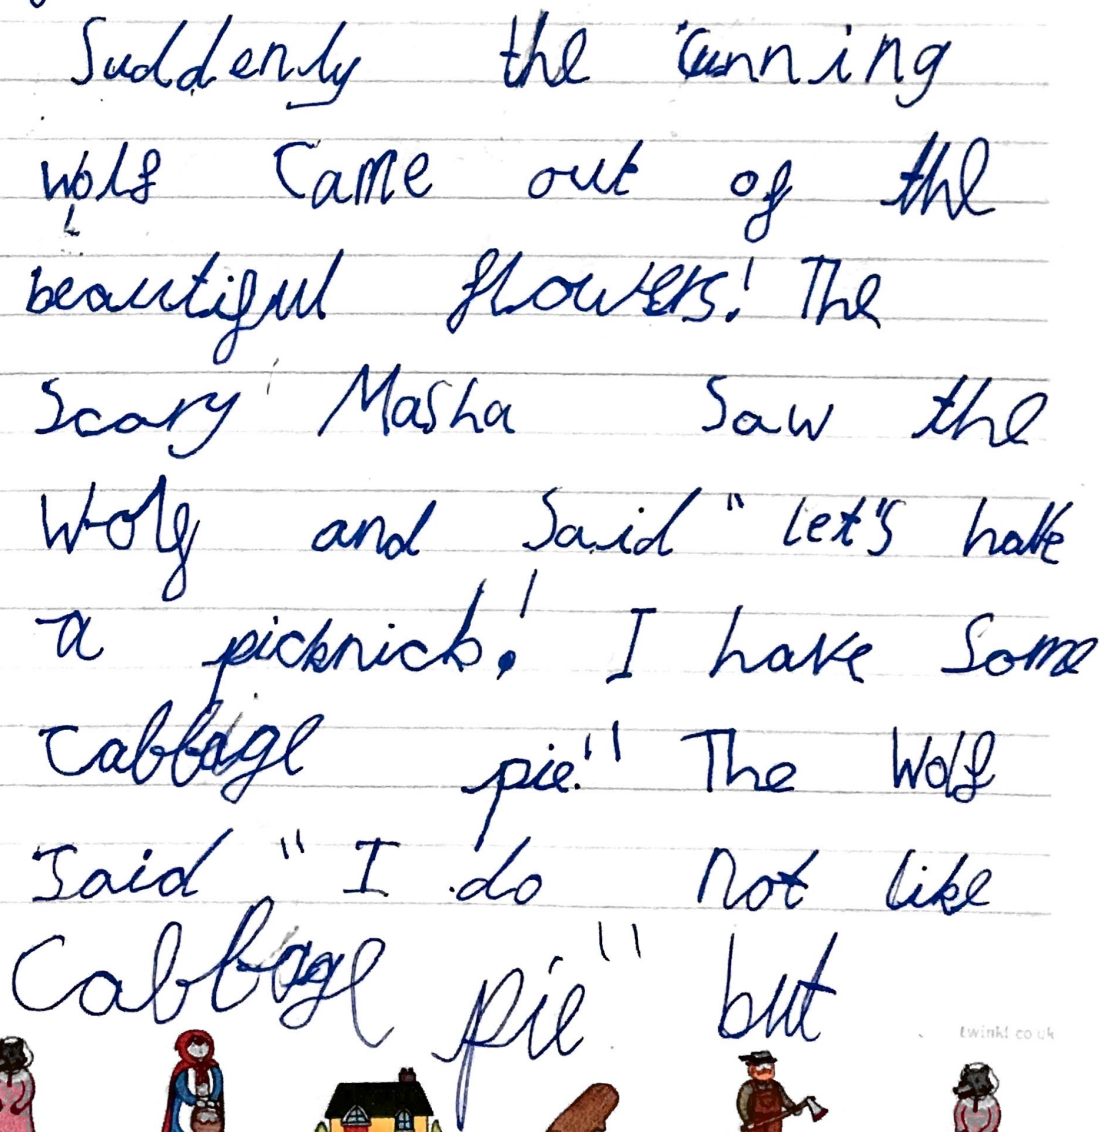 Suddenly the cunning
wolf came out of the
beautiful flowers! The
scary Masha saw the
Wolf and said "let's have
a picknick! I have some
cabbage pie!" The Wolf
said "I do not like
Cabbage pie" but
twinkl.co.uk